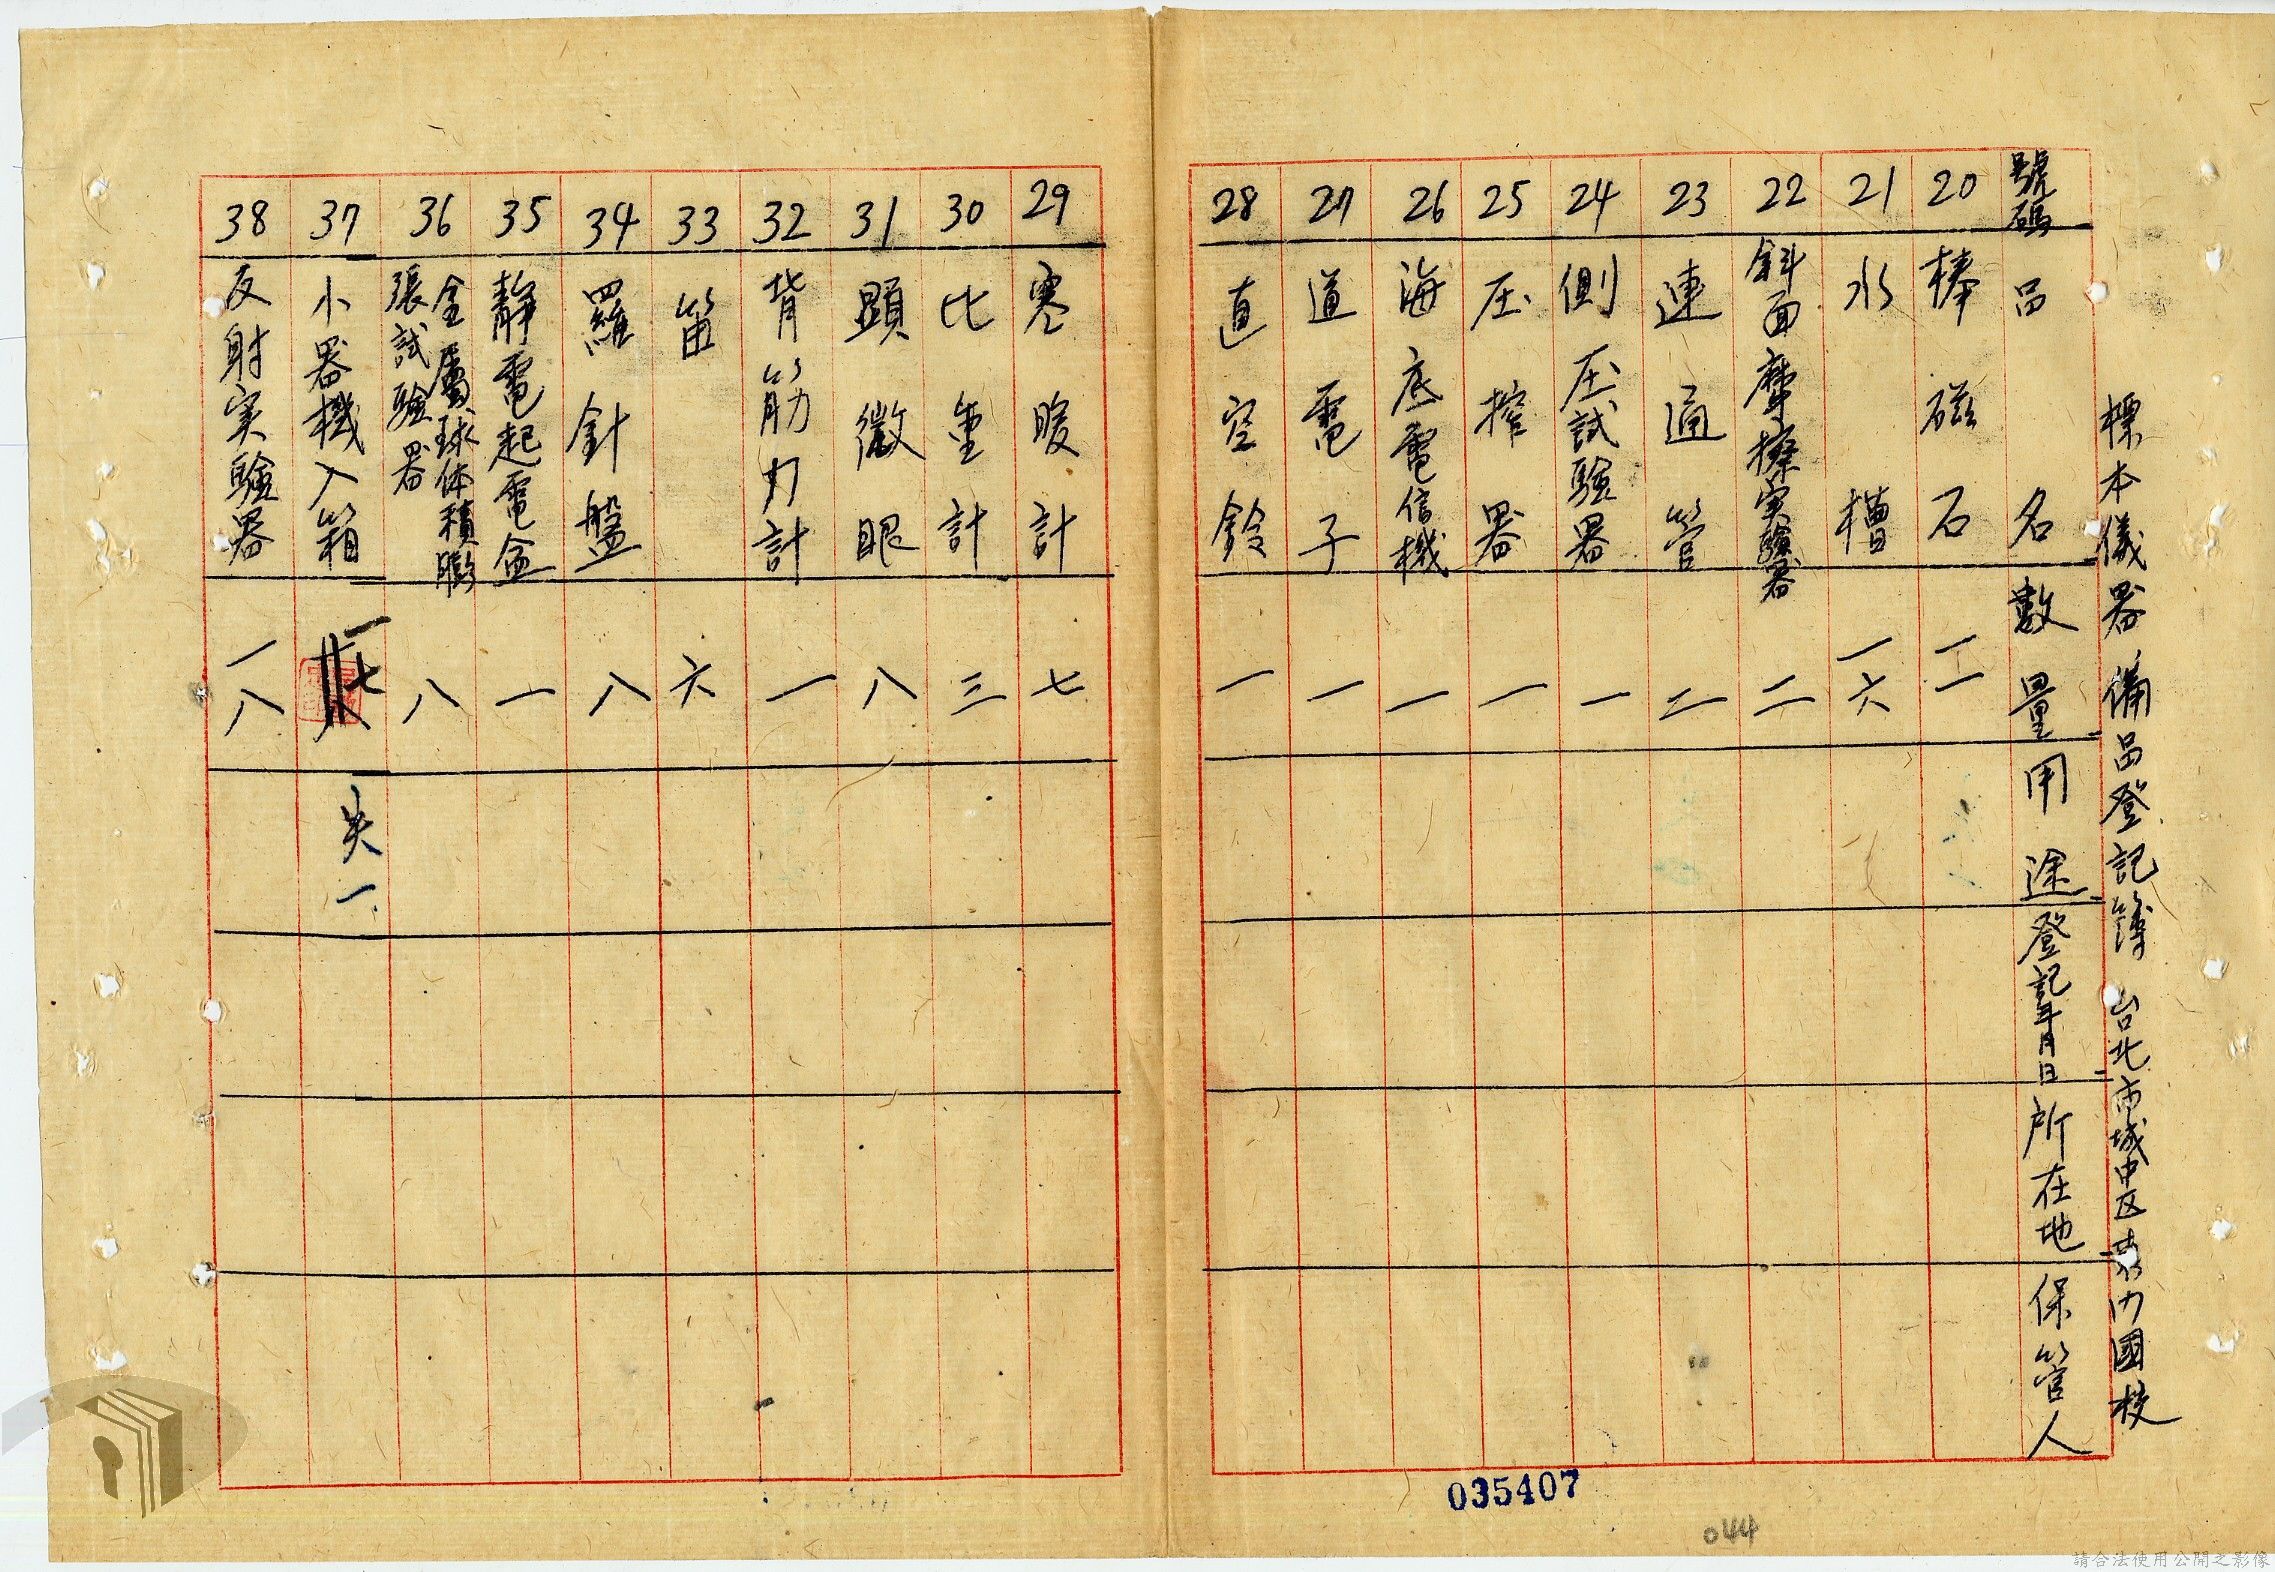 標本儀器備品登記簿 台北市城中区東門國校
號碼 品名 數量 用途 登記年月日 所在地 保管人
20 棒磁石 二
21 水槽 一六
22 斜面摩擦実驗器 二
23 連通管 二
24 側圧試驗器 一
25 圧搾器 一
26 海底電信機 一
27 道電子 一
28 真空鈴 一
29 寒暖計 七
30 比重計 三
31 顕微眼 八
32 背筋力計 一
33 笛 六
34 羅針盤 八
35 静電起電盆 一
36 金屬球体積膨張試驗器 八
37 小器機入箱 一七 失一
38 反射実驗器 一八
035407
044
請合法使用公開之影像